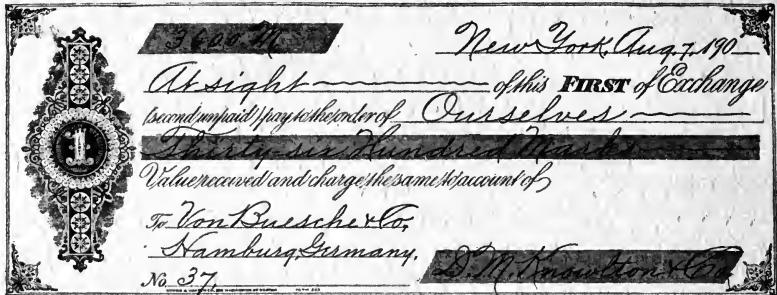 3600 M
New York, Aug. 7, 190
At sight of this FIRST of Exchange
(second unpaid) pay to the order of Ourselves
Thirty six Hundred Marks
Value received and charge the same to account of
To Von Buesche & Co,
Hamburg, Germany.
No. 37 D. M. Knowlton & Co